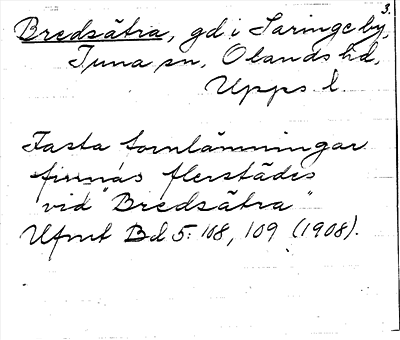 3.
Bredsätra, gd i Saringe by,
Tuna sn, Olands hd,
Upps l.
Fasta fornlämningar
finnas flerstädes
vid "Bredsätra"
Ufmt Bd 5: 108, 109 (1908).